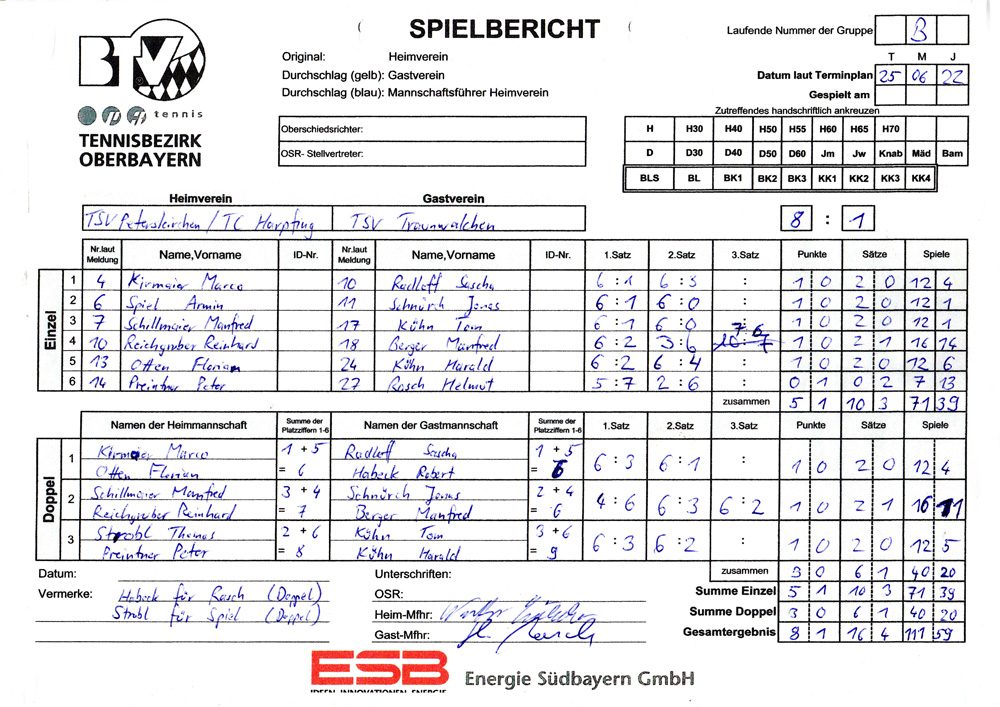 SPIELBERICHT
BTV
tennis
TENNISBEZIRK
OBERBAYERN
Original: Heimverein
Durchschlag (gelb): Gastverein
Durchschlag (blau): Mannschaftsführer Heimverein
Laufende Nummer der Gruppe B
T M J
Datum laut Terminplan 25 06 22
Gespielt am
Zutreffendes handschriftlich ankreuzen
Oberschiedsrichter:
OSR- Stellvertreter:
H H30 H40 H50 H55 H60 H65 H70
D D30 D40 D50 D60 Jm Jw Knab Mäd Bam
BLS BL BK1 BK2 BK3 KK1 KK2 KK3 KK4
Heimverein Gastverein
TSV Peterskirchen / TC Harpfing TSV Traunwalchen 8 : 1
Nr.laut Meldung Name,Vorname ID-Nr. Nr.laut Meldung Name,Vorname ID-Nr. 1.Satz 2.Satz 3.Satz Punkte Sätze Spiele
Einzel
1 4 Kirmaier Marco 10 Radloff Sascha 6 : 1 6 : 3 : 1 0 2 0 12 4
2 6 Spiel Armin 11 Schnürch Jonas 6 : 1 6 : 0 : 1 0 2 0 12 1
3 7 Schillmaier Manfred 17 Kühn Tom 6 : 1 6 : 0 : 1 0 2 0 12 1
4 10 Reichgruber Reinhard 18 Berger Manfred 6 : 2 3 : 6 7 6 10 : 7 1 0 2 1 16 14
5 13 Otten Florian 24 Kühn Harald 6 : 2 6 : 4 : 1 0 2 0 12 6
6 14 Preintner Peter 27 Rasch Helmut 5 : 7 2 : 6 : 0 1 0 2 7 13
zusammen 5 1 10 3 71 39
Namen der Heimmannschaft Summe der Platzziffern 1-6 Namen der Gastmannschaft Summe der Platzziffern 1-6 1.Satz 2.Satz 3.Satz Punkte Sätze Spiele
Doppel
1 Kirmaier Marco 1 + 5 Radloff Sascha 1 + 5
Otten Florian = 6 Habeck Robert = 6 6 : 3 6 : 1 : 1 0 2 0 12 4
2 Schillmaier Manfred 3 + 4 Schnürch Jonas 2 + 4
Reichgruber Reinhard = 7 Berger Manfred = 6 4 : 6 6 : 3 6 : 2 1 0 2 1 16 11
3 Strobl Thomas 2 + 6 Kühn Tom 3 + 6
Preintner Peter = 8 Kühn Harald = 9 6 : 3 6 : 2 : 1 0 2 0 12 5
zusammen 3 0 6 1 40 20
Datum: Unterschriften:
Vermerke: Habeck für Rasch (Doppel) OSR: Summe Einzel 5 1 10 3 71 39
Strobl für Spiel (Doppel) Heim-Mfhr: Summe Doppel 3 0 6 1 40 20
Gast-Mfhr: Rasch Gesamtergebnis 8 1 16 4 111 59
ESB Energie Südbayern GmbH
IDEEN INNOVATIONEN ENERGIE